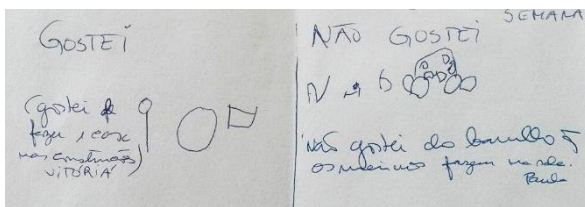 GOSTEI
(gostei de
fazer a casa
nas construções)
VITÓRIA
SEMANA
NÃO GOSTEI
Não gostei do barulho q
os meninos fazem na sala.
Paula